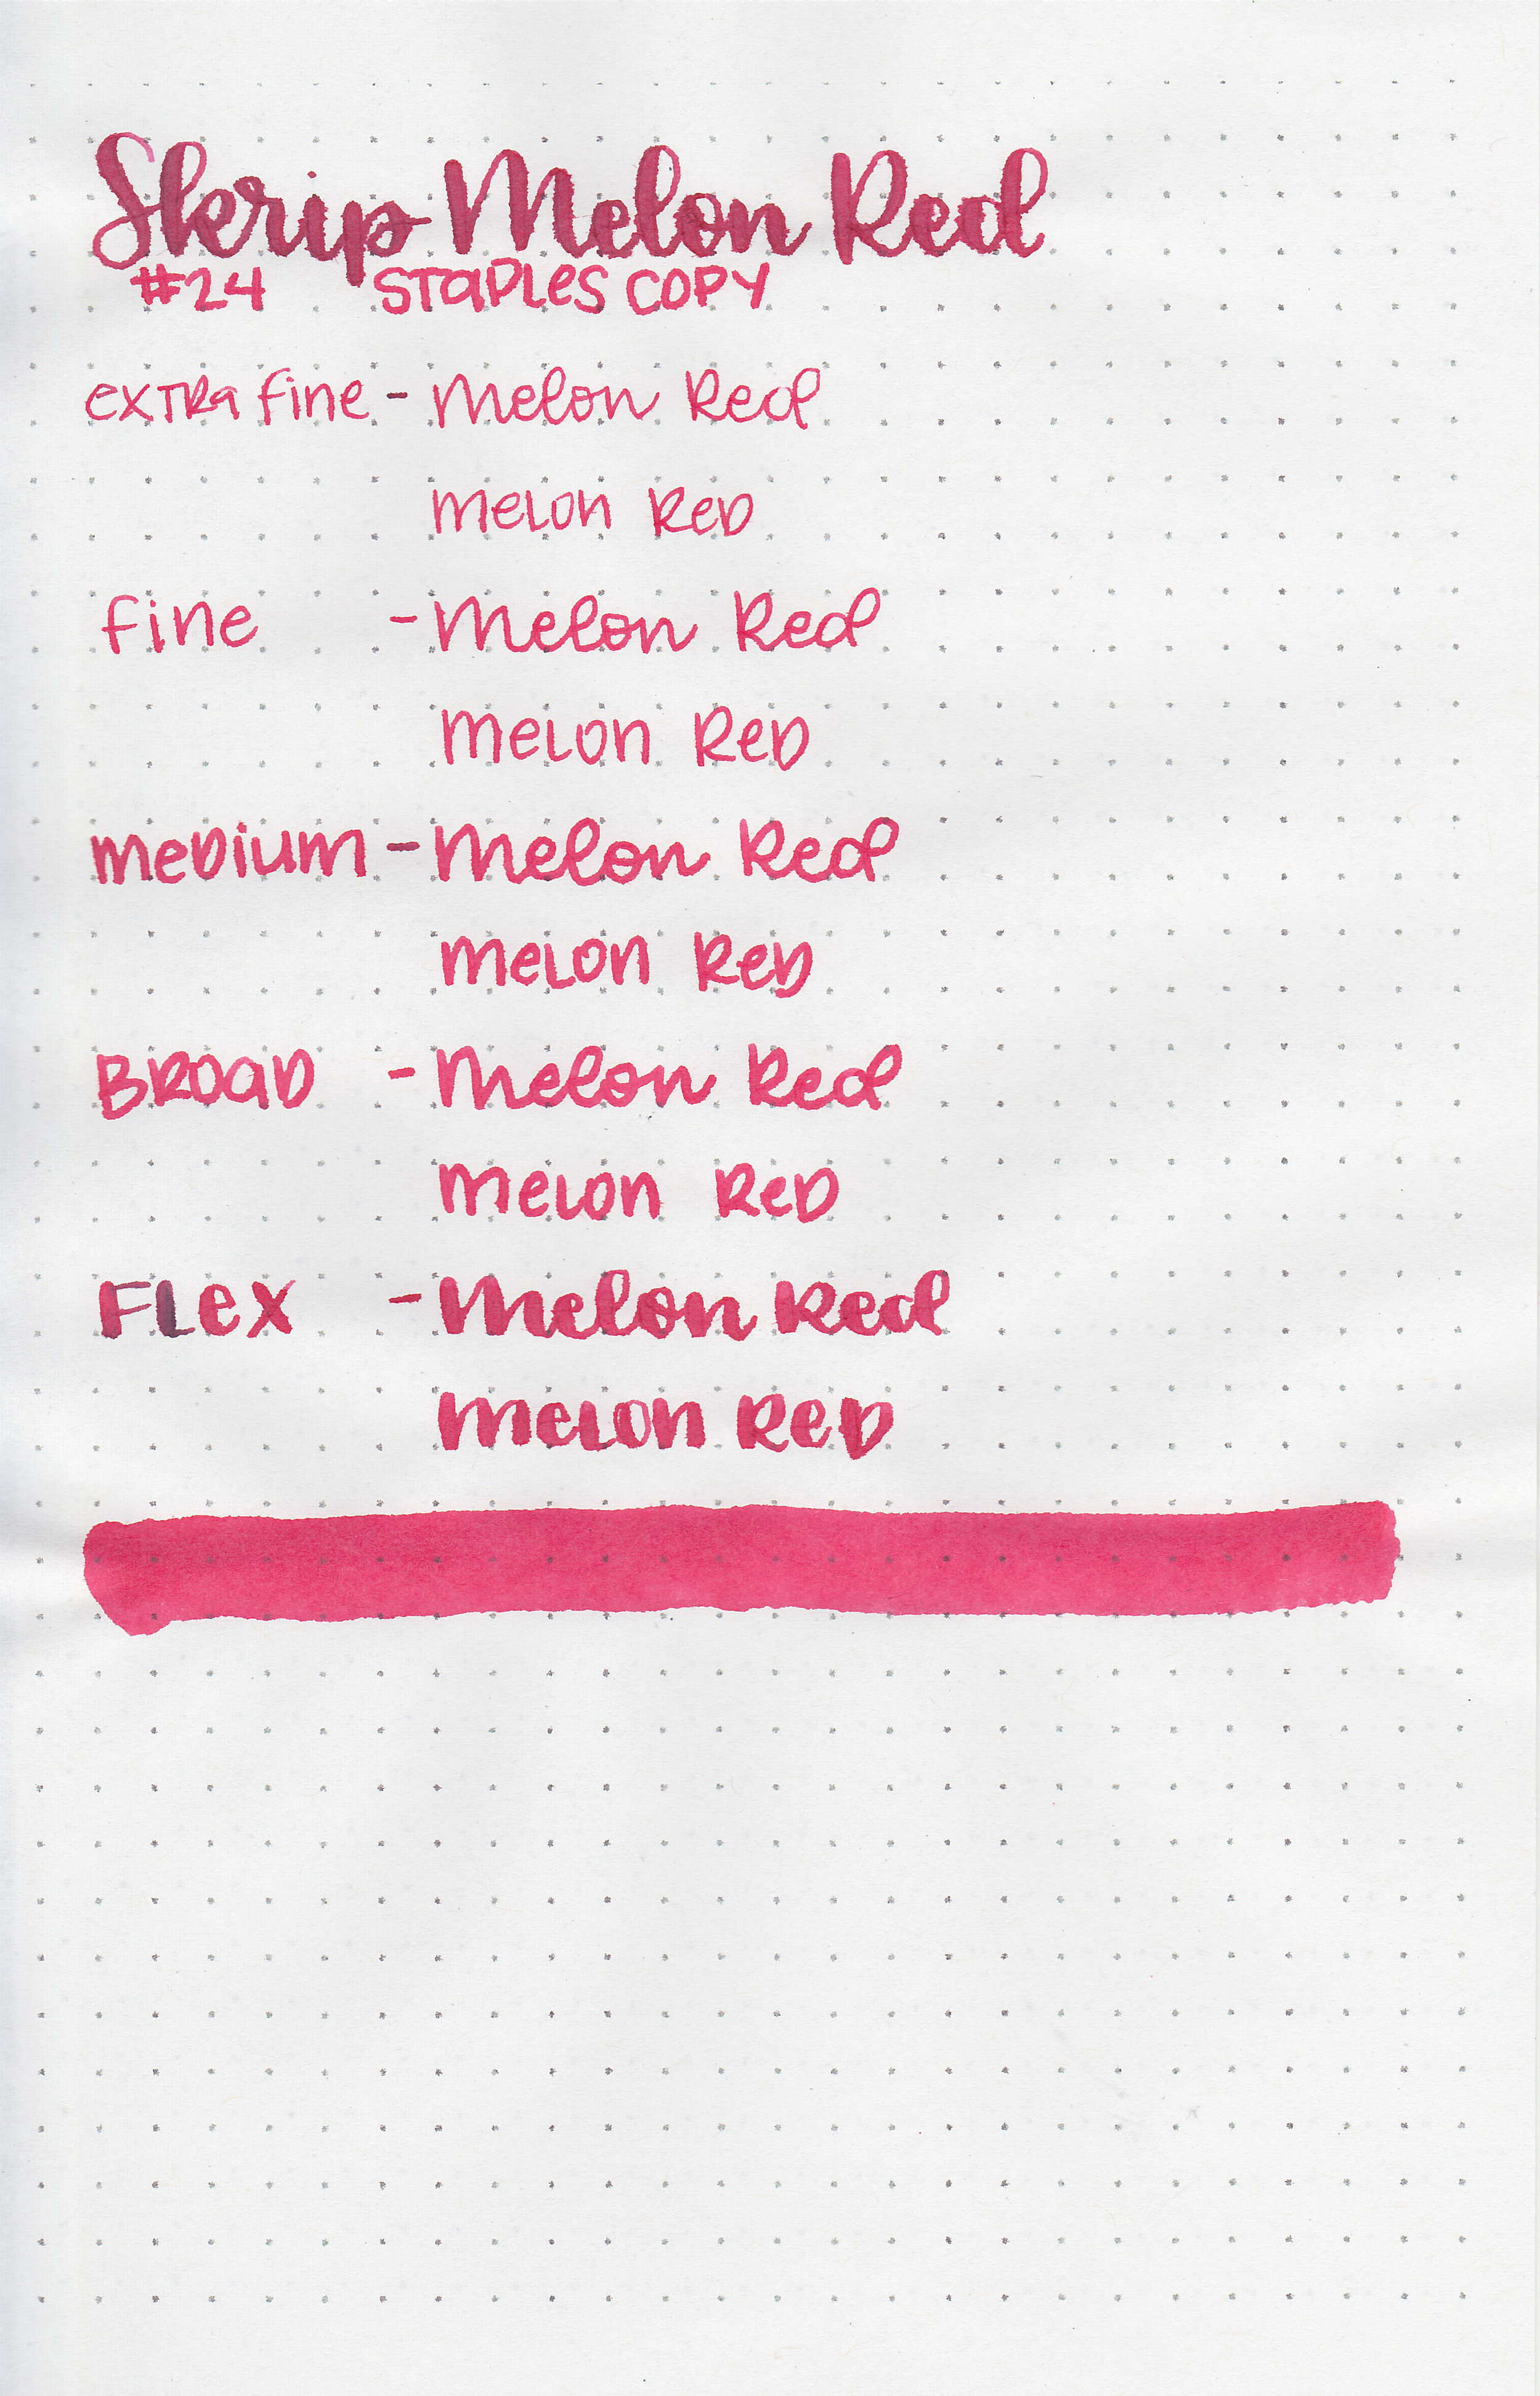 Skrip Melon Red
#24 STAPLES COPY
extra fine - Melon Red
melon Red
fine - Melon Red
melon Red
medium - Melon Red
melon Red
Broad - Melon Red
melon Red
Flex - Melon Red
melon Red